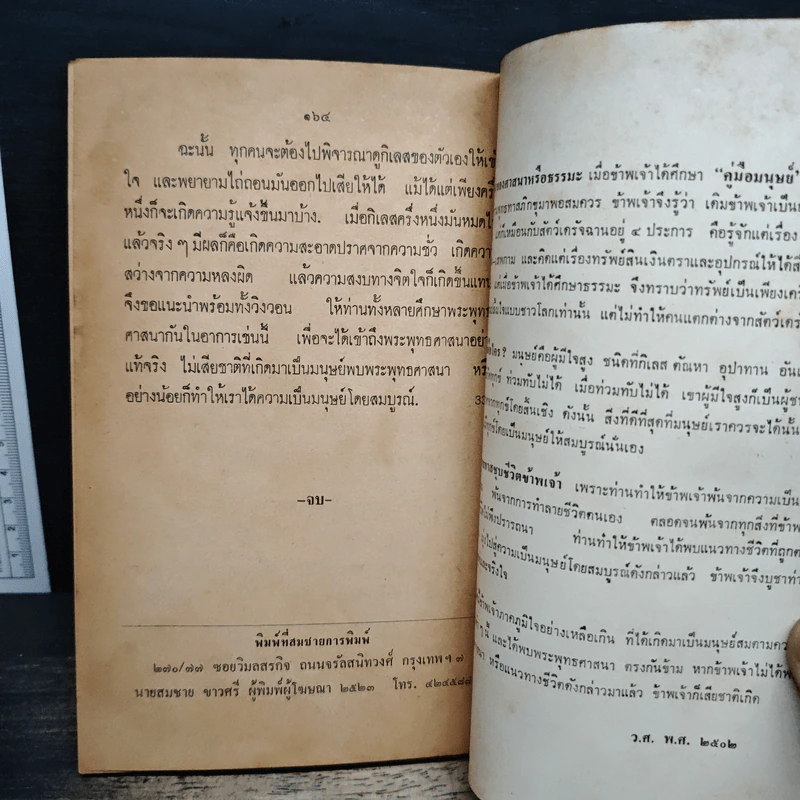 ๑๖๔
ฉะนั้น ทุกคนจะต้องไปพิจารณาดูกิเลสของตัวเองให้เข้
ใจ และพยายามไถ่ถอนมันออกไปเสียให้ได้ แม้ได้แต่เพียงครึ่
หนึ่งก็จะเกิดความรู้แจ้งขึ้นมาบ้าง. เมื่อกิเลสครึ่งหนึ่งมันหมดไ
แล้วจริง ๆ มีผลก็คือเกิดความสะอาดปราศจากความชั่ว เกิดควา
สว่างจากความหลงผิด แล้วความสงบทางจิตใจก็เกิดขึ้นแทน
จึงขอแนะนำพร้อมทั้งวิงวอน ให้ท่านทั้งหลายศึกษาพระพุทธ
ศาสนากันในอาการเช่นนี้ เพื่อจะได้เข้าถึงพระพุทธศาสนาอย่า
แท้จริง ไม่เสียชาติที่เกิดมาเป็นมนุษย์พบพระพุทธศาสนา หรื
อย่างน้อยก็ทำให้เราได้ความเป็นมนุษย์โดยสมบูรณ์.
–จบ–
พิมพ์ที่สมชายการพิมพ์
๒๗๐/๗๗ ซอยวิมลสรกิจ ถนนจรัลสนิทวงศ์ กรุงเทพฯ ๗
นายสมชาย ขาวศรี ผู้พิมพ์ผู้โฆษณา ๒๕๒๓ โทร. ๔๒๔๕๘๘
ของศาสนาหรือธรรมะ เมื่อข้าพเจ้าได้ศึกษา “คู่มือมนุษย์”
พุทธทาสภิกขุมาพอสมควร ข้าพเจ้าจึงรู้ว่า เดิมข้าพเจ้าเป็นม
เหมือนกับสัตว์เดรัจฉานอยู่ ๔ ประการ คือรู้จักแต่เรื่อง
และคิดแต่เรื่องทรัพย์สินเงินตราและอุปกรณ์ให้ได้สิ่
เมื่อข้าพเจ้าได้ศึกษาธรรมะ จึงทราบว่าทรัพย์เป็นเพียงเครื่
แบบชาวโลกเท่านั้น แต่ไม่ทำให้คนแตกต่างจากสัตว์เดรั
ใคร? มนุษย์คือผู้มีใจสูง ชนิดที่กิเลส ตัณหา อุปาทาน อัน
ทุกข์ ท่วมทับไม่ได้ เมื่อท่วมทับไม่ได้ เขาผู้มีใจสูงก็เป็นผู้ช
ทุกข์โดยสิ้นเชิง ดังนั้น สิ่งที่ดีที่สุดที่มนุษย์เราควรจะได้นั้น
โดยเป็นมนุษย์ให้สมบูรณ์นั่นเอง
ชุบชีวิตข้าพเจ้า เพราะท่านทำให้ข้าพเจ้าพ้นจากความเป็น
พ้นจากการทำลายชีวิตตนเอง ตลอดจนพ้นจากทุกสิ่งที่ข้าพ
ไม่พึงปรารถนา ท่านทำให้ข้าพเจ้าได้พบแนวทางชีวิตที่ถูกต
ไปสู่ความเป็นมนุษย์โดยสมบูรณ์ดังกล่าวแล้ว ข้าพเจ้าจึงบูชาท่า
จริงใจ
ข้าพเจ้าภาคภูมิใจอย่างเหลือเกิน ที่ได้เกิดมาเป็นมนุษย์สมตามคว
ๆ นี้ และได้พบพระพุทธศาสนา ตรงกันข้าม หากข้าพเจ้าไม่ได้พ
หรือแนวทางชีวิตดังกล่าวมาแล้ว ข้าพเจ้าก็เสียชาติเกิด
ว.ศ. พ.ศ. ๒๕๐๒